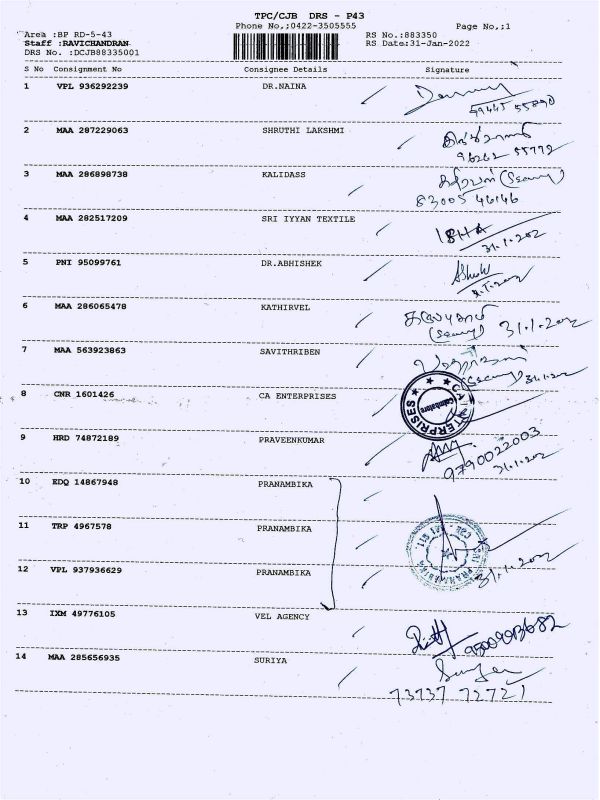 TPC/CJB DRS - P43
Phone No,;0422-3505555 Page No,;1
Area :BP RD-5-43 RS No.:883350
Staff :RAVICHANDRAN RS Date:31-Jan-2022
DRS No. :DCJB88335001
S No Consignment No Consignee Details Signature
1 VPL 936292239 DR.NAINA
79445 55890
2 MAA 287229063 SHRUTHI LAKSHMI
96262 55772
3 MAA 286898738 KALIDASS
83005 46146
4 MAA 282517209 SRI IYYAN TEXTILE
31.1.202
5 PNI 95099761 DR.ABHISHEK Ashok
6 MAA 286065478 KATHIRVEL
31.1.202
7 MAA 563923863 SAVITHRIBEN
31.1.202
8 CNR 1601426 CA ENTERPRISES
CA ENTERPRISES
Coimbatore
9 HRD 74872189 PRAVEENKUMAR
9790022003
31.1.202
10 EDQ 14867948 PRANAMBIKA
11 TRP 4967578 PRANAMBIKA
12 VPL 937936629 PRANAMBIKA
31.1.202
13 IXM 49776105 VEL AGENCY
14 MAA 285656935 SURIYA
73737 72721